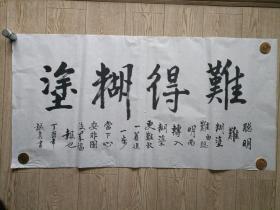 難得糊塗
聰明
難
糊塗
難由聰
明而
轉入
糊塗
更難放
一着退
一步
當下心
安非圖
後来福
報也
書